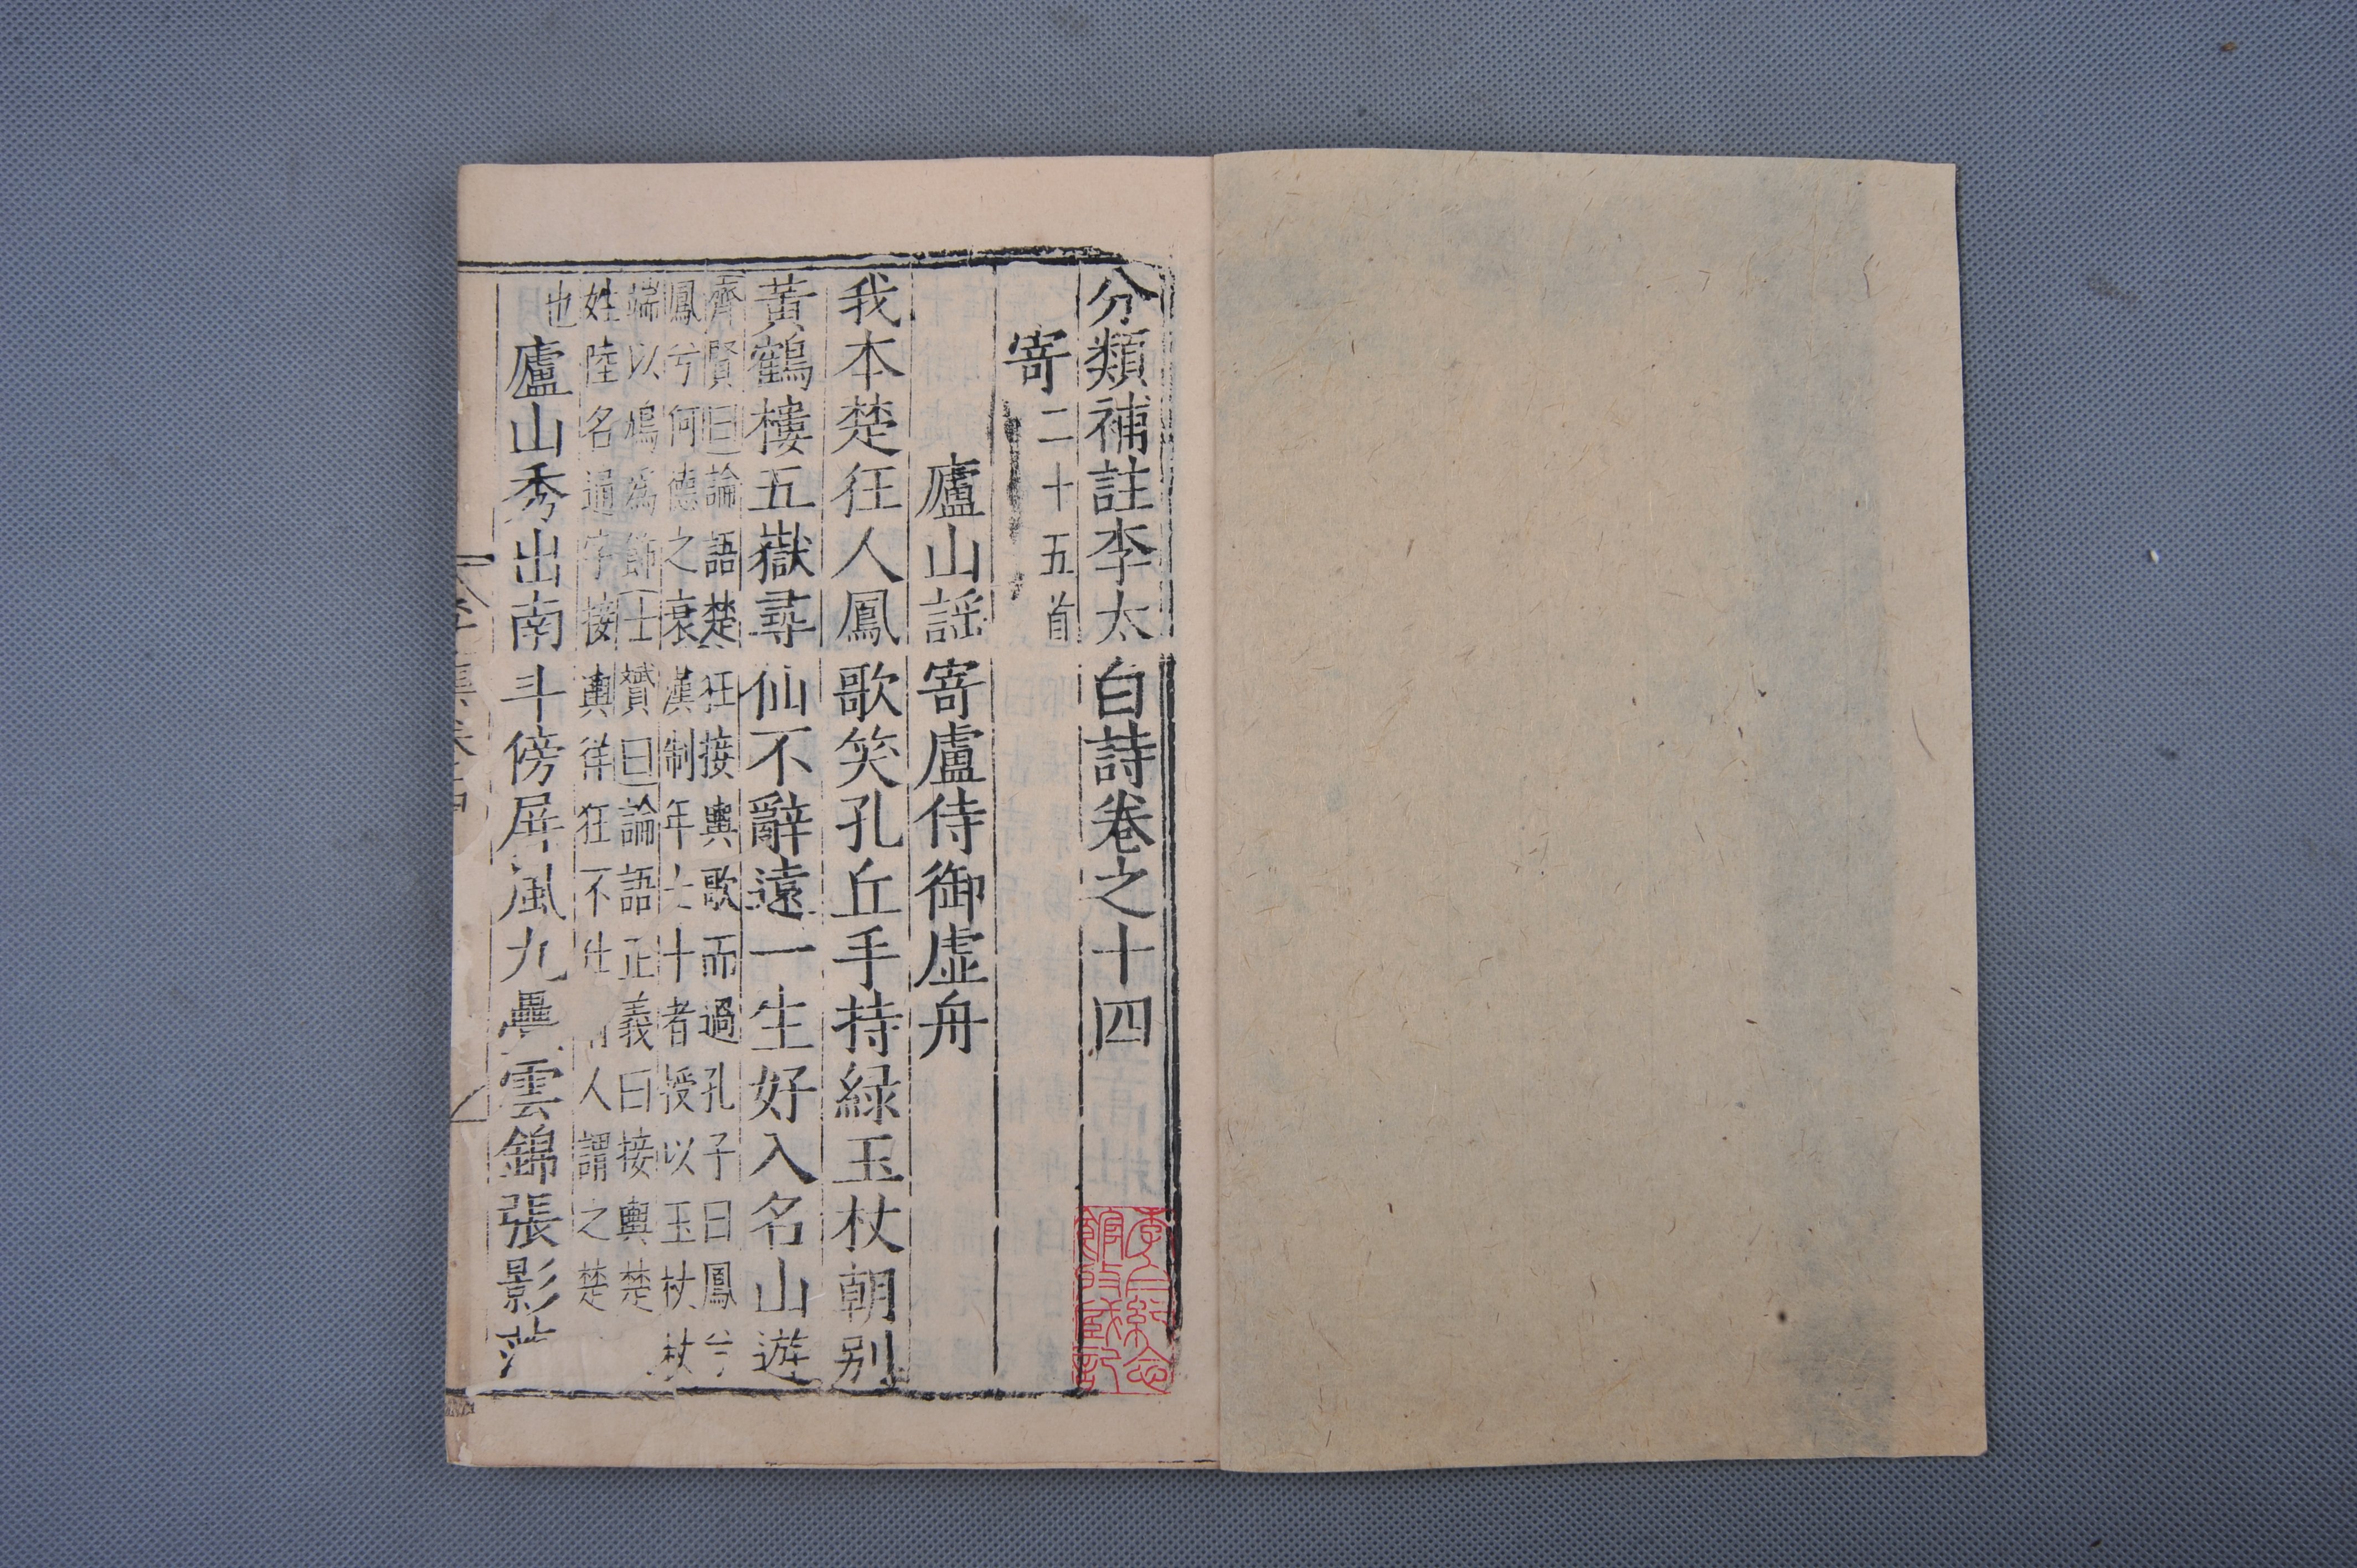 分類補註李太白詩卷之十四
寄二十五首
廬山謡寄盧侍御虛舟
我本楚狂人鳳歌笑孔丘手持緑玉杖朝别
黃鶴樓五嶽尋仙不辭遠一生好入名山遊
齊賢曰論語楚狂接輿歌而過孔子曰鳳兮
鳳兮何德之衰漢制年七十者授以玉杖杖
端以鳩為飾士贇曰論語正義曰接輿楚
姓陸名通字接輿佯狂不仕人謂之楚
也
廬山秀出南斗傍屏風九疊雲錦張影
李白紀念館的藏記